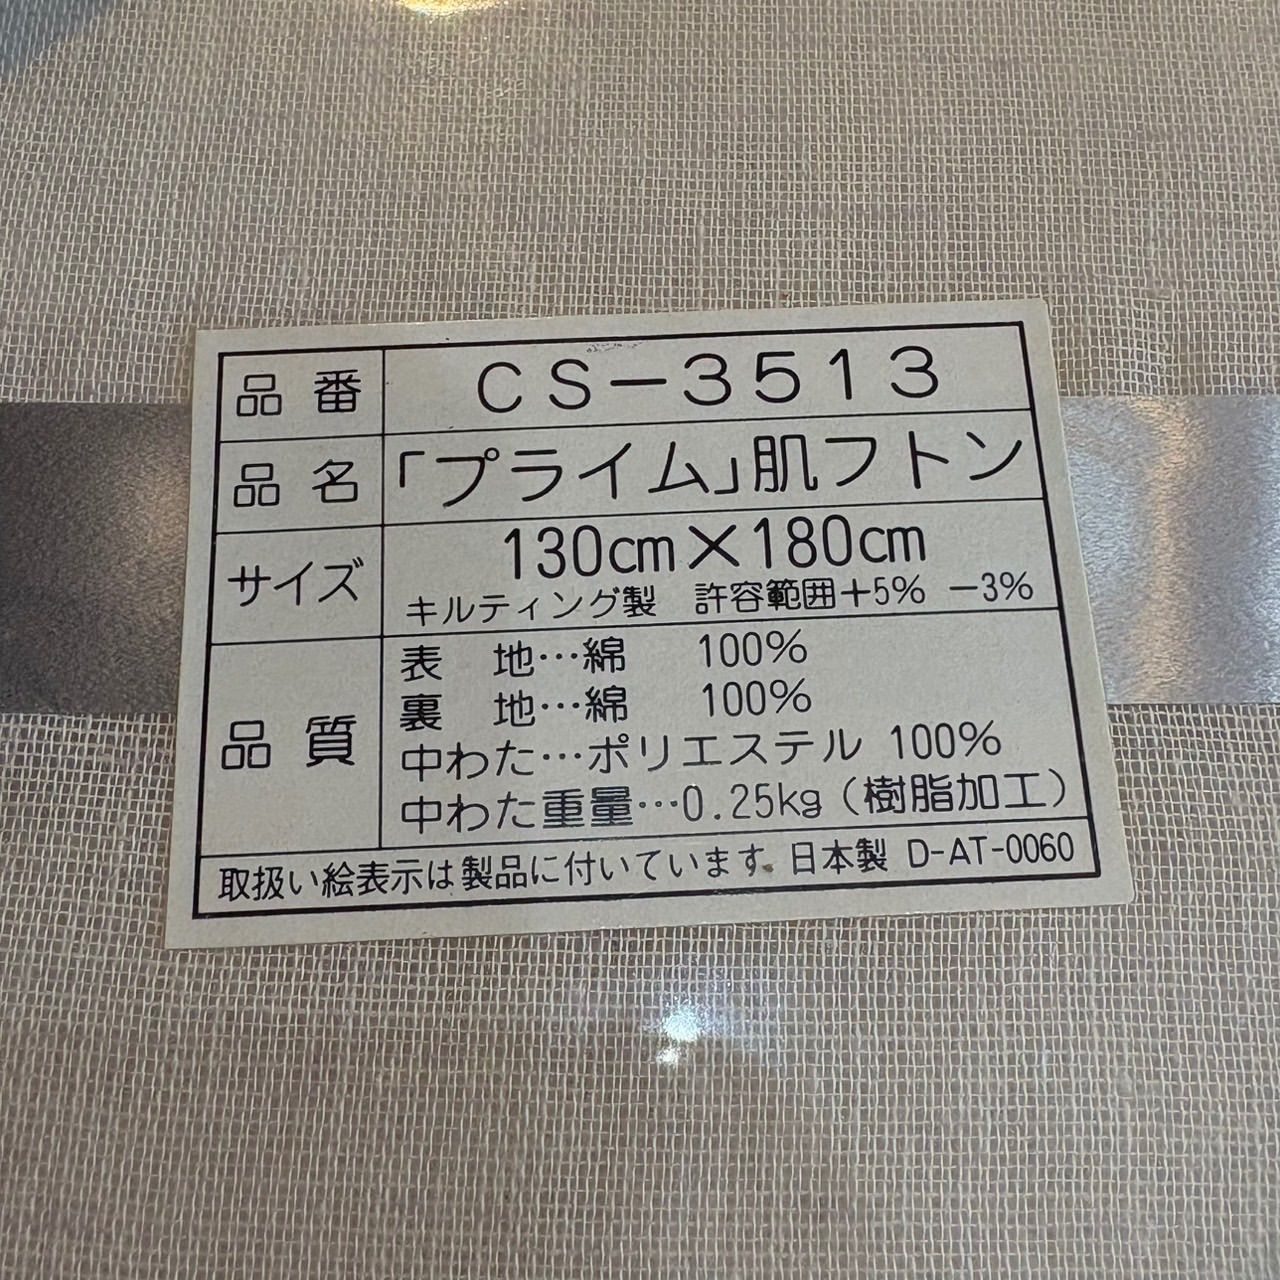 品番 CS-3513
品名 「プライム」肌フトン
サイズ 130cm×180cm
キルティング製 許容範囲+5% -3%
品質 表 地…綿 100%
裏 地…綿 100%
中わた…ポリエステル 100%
中わた重量…0.25kg(樹脂加工)
取扱い絵表示は製品に付いています. 日本製 D-AT-0060